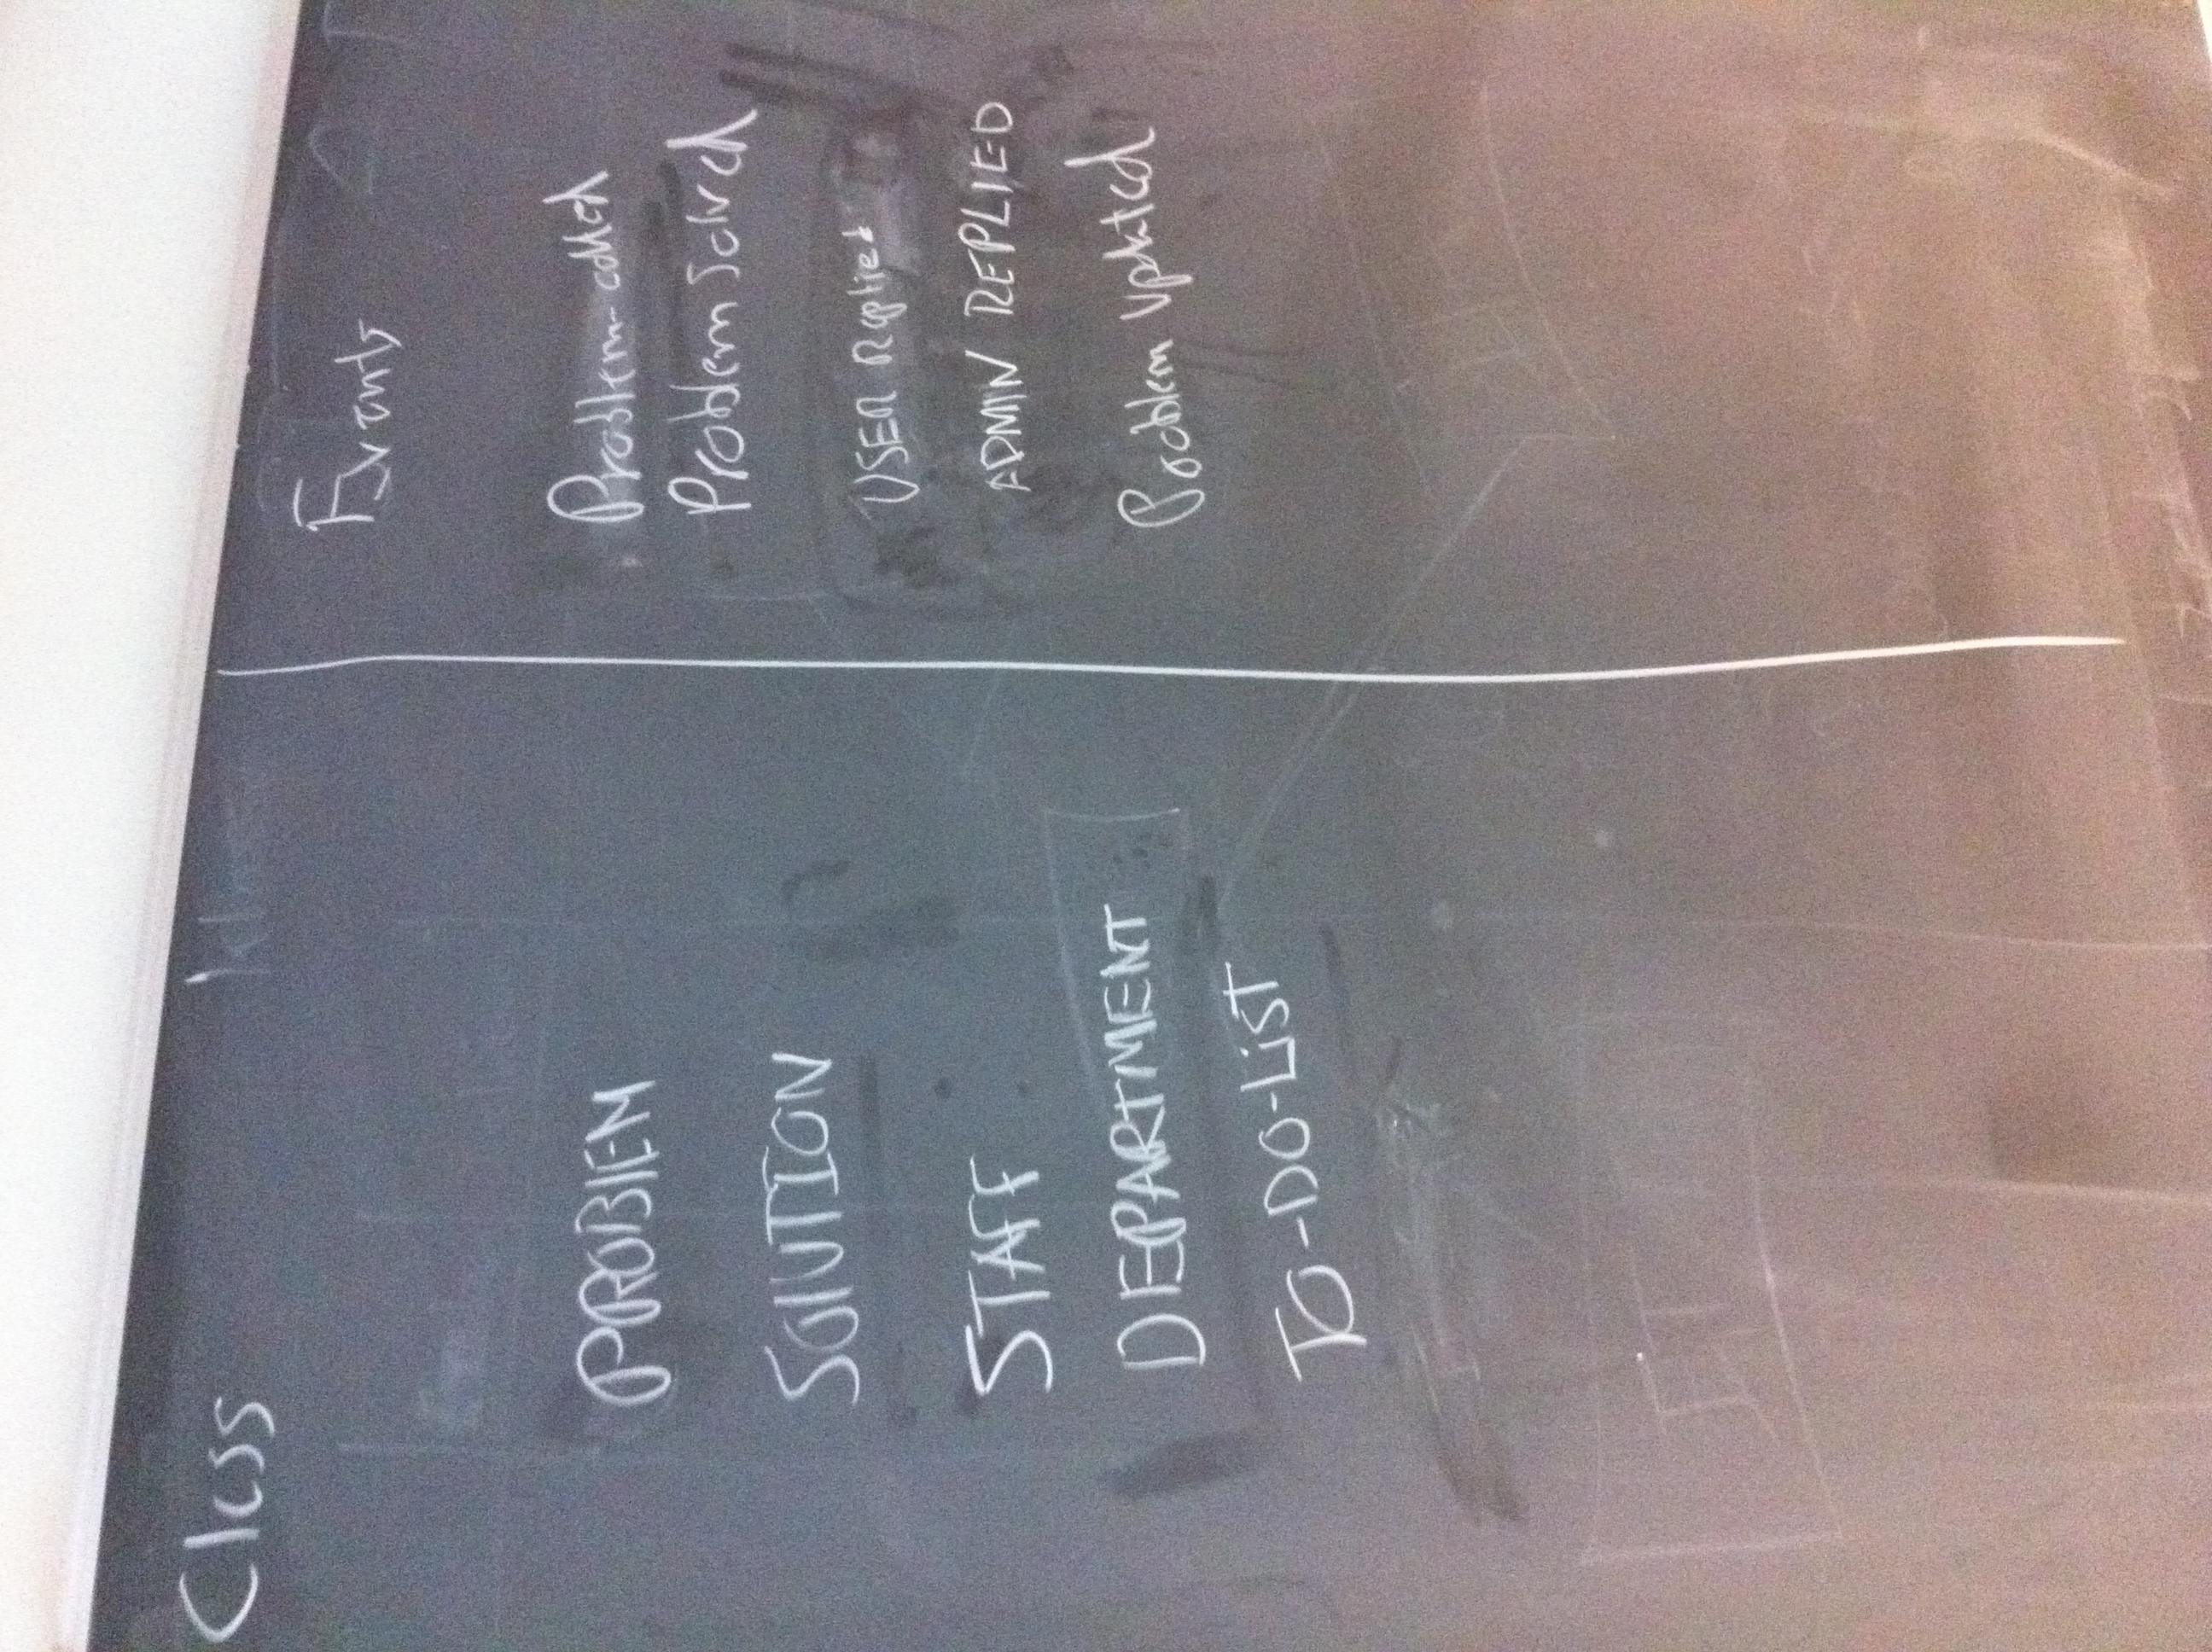 Class
Events
PROBLEM
SOLUTION
STAFF
DEPARTMENT
TO-DO-LiST
Problem added
Problem Solved
USER Replied
ADMIN REPLIED
Problem Updated